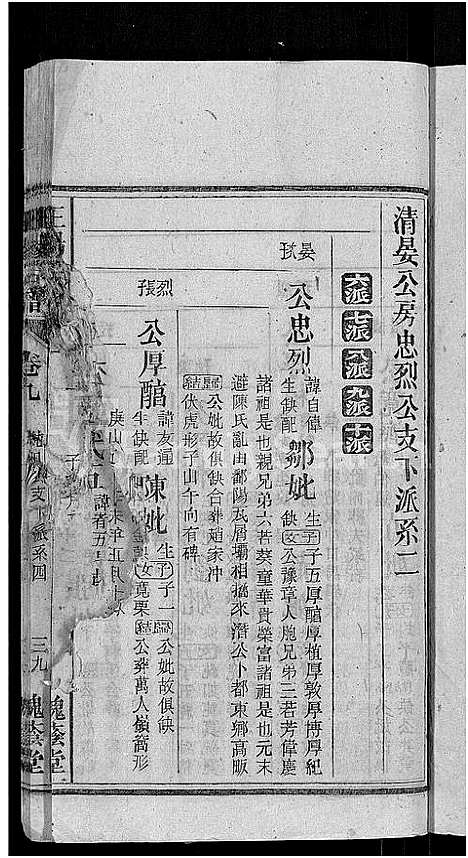 清晏公房忠烈公支下派系二
六派 七派 八派 九派 十派
晏珷
公忠烈
諱自偉
生缺配
鄒妣
生缺 子五厚醕厚植厚敦厚博厚紀
女 公豫章人胞兄弟三若芳偉慶
諸祖是也親兄弟六若葵童華貴榮富諸祖是也元末
避陳氏亂由鄱陽瓦屑壩相携來潛公卜都東鄉高畈
歸 公妣故俱缺合葬趙家冲
結 伏虎形子山午向有碑
烈
公厚醕
諱友通
生缺配
陳妣
生 子一 歸 公妣故俱缺
缺 女 萬栗 結 公葬萬人嶺窩形
庚山
諱者五
卷九
支下派系四
三九
槐蔭堂